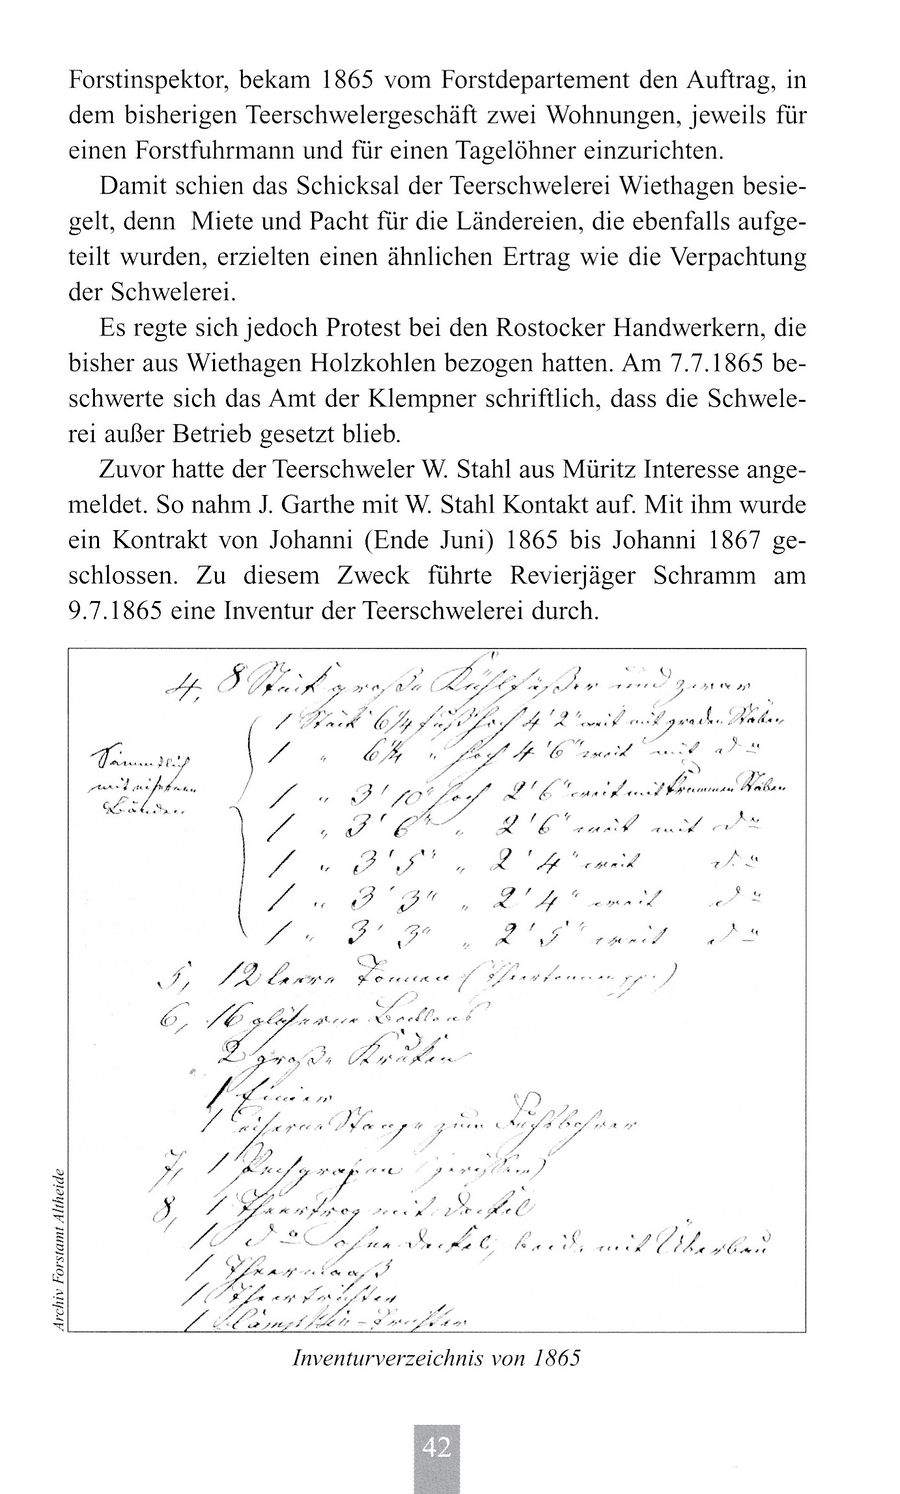 Forstinspektor, bekam 1865 vom Forstdepartement den Auftrag, in
dem bisherigen Teerschwelergeschäft zwei Wohnungen, jeweils für
einen Forstfuhrmann und für einen Tagelöhner einzurichten.
Damit schien das Schicksal der Teerschwelerei Wiethagen besie-
gelt, denn Miete und Pacht für die Ländereien, die ebenfalls aufge-
teilt wurden, erzielten einen ähnlichen Ertrag wie die Verpachtung
der Schwelerei.
Es regte sich jedoch Protest bei den Rostocker Handwerkern, die
bisher aus Wiethagen Holzkohlen bezogen hatten. Am 7.7.1865 be-
schwerte sich das Amt der Klempner schriftlich, dass die Schwele-
rei außer Betrieb gesetzt blieb.
Zuvor hatte der Teerschweler W. Stahl aus Müritz Interesse ange-
meldet. So nahm J. Garthe mit W. Stahl Kontakt auf. Mit ihm wurde
ein Kontrakt von Johanni (Ende Juni) 1865 bis Johanni 1867 ge-
schlossen. Zu diesem Zweck führte Revierjäger Schramm am
9.7.1865 eine Inventur der Teerschwelerei durch.
4, 8 Stück große Kühlfäßer und zwar
1 Stück 6¼ fuß hoch 4' 2" weit mit graden Stäben
1 " 6¼ " hoch 4' 6" weit mit do
Sämmtlich
mit eisernen
Bänden
1 " 3' 10" hoch 2' 6" weit mit krummen Stäben
1 " 3' 6" " 2' 6" weit mit do
1 " 3' 5" " 2' 4" weit do
1 " 3' 3" " 2' 4" weit do
1 " 3' 3" " 2' 5" weit do
5, 12 leere Tonnen (Theertonnen pp.)
6, 16 gläserne
2 große Kruken
1 Eimer
1 eiserne Stange zum
7, 1 Pechgrapen
8, 1 Theertrog mit Deckel
1 do ohne Deckel, beide mit Überbau
1 Theermaaß
1 Theertrichter
1 Trichter
Archiv Forstamt Altheide
Inventurverzeichnis von 1865
42